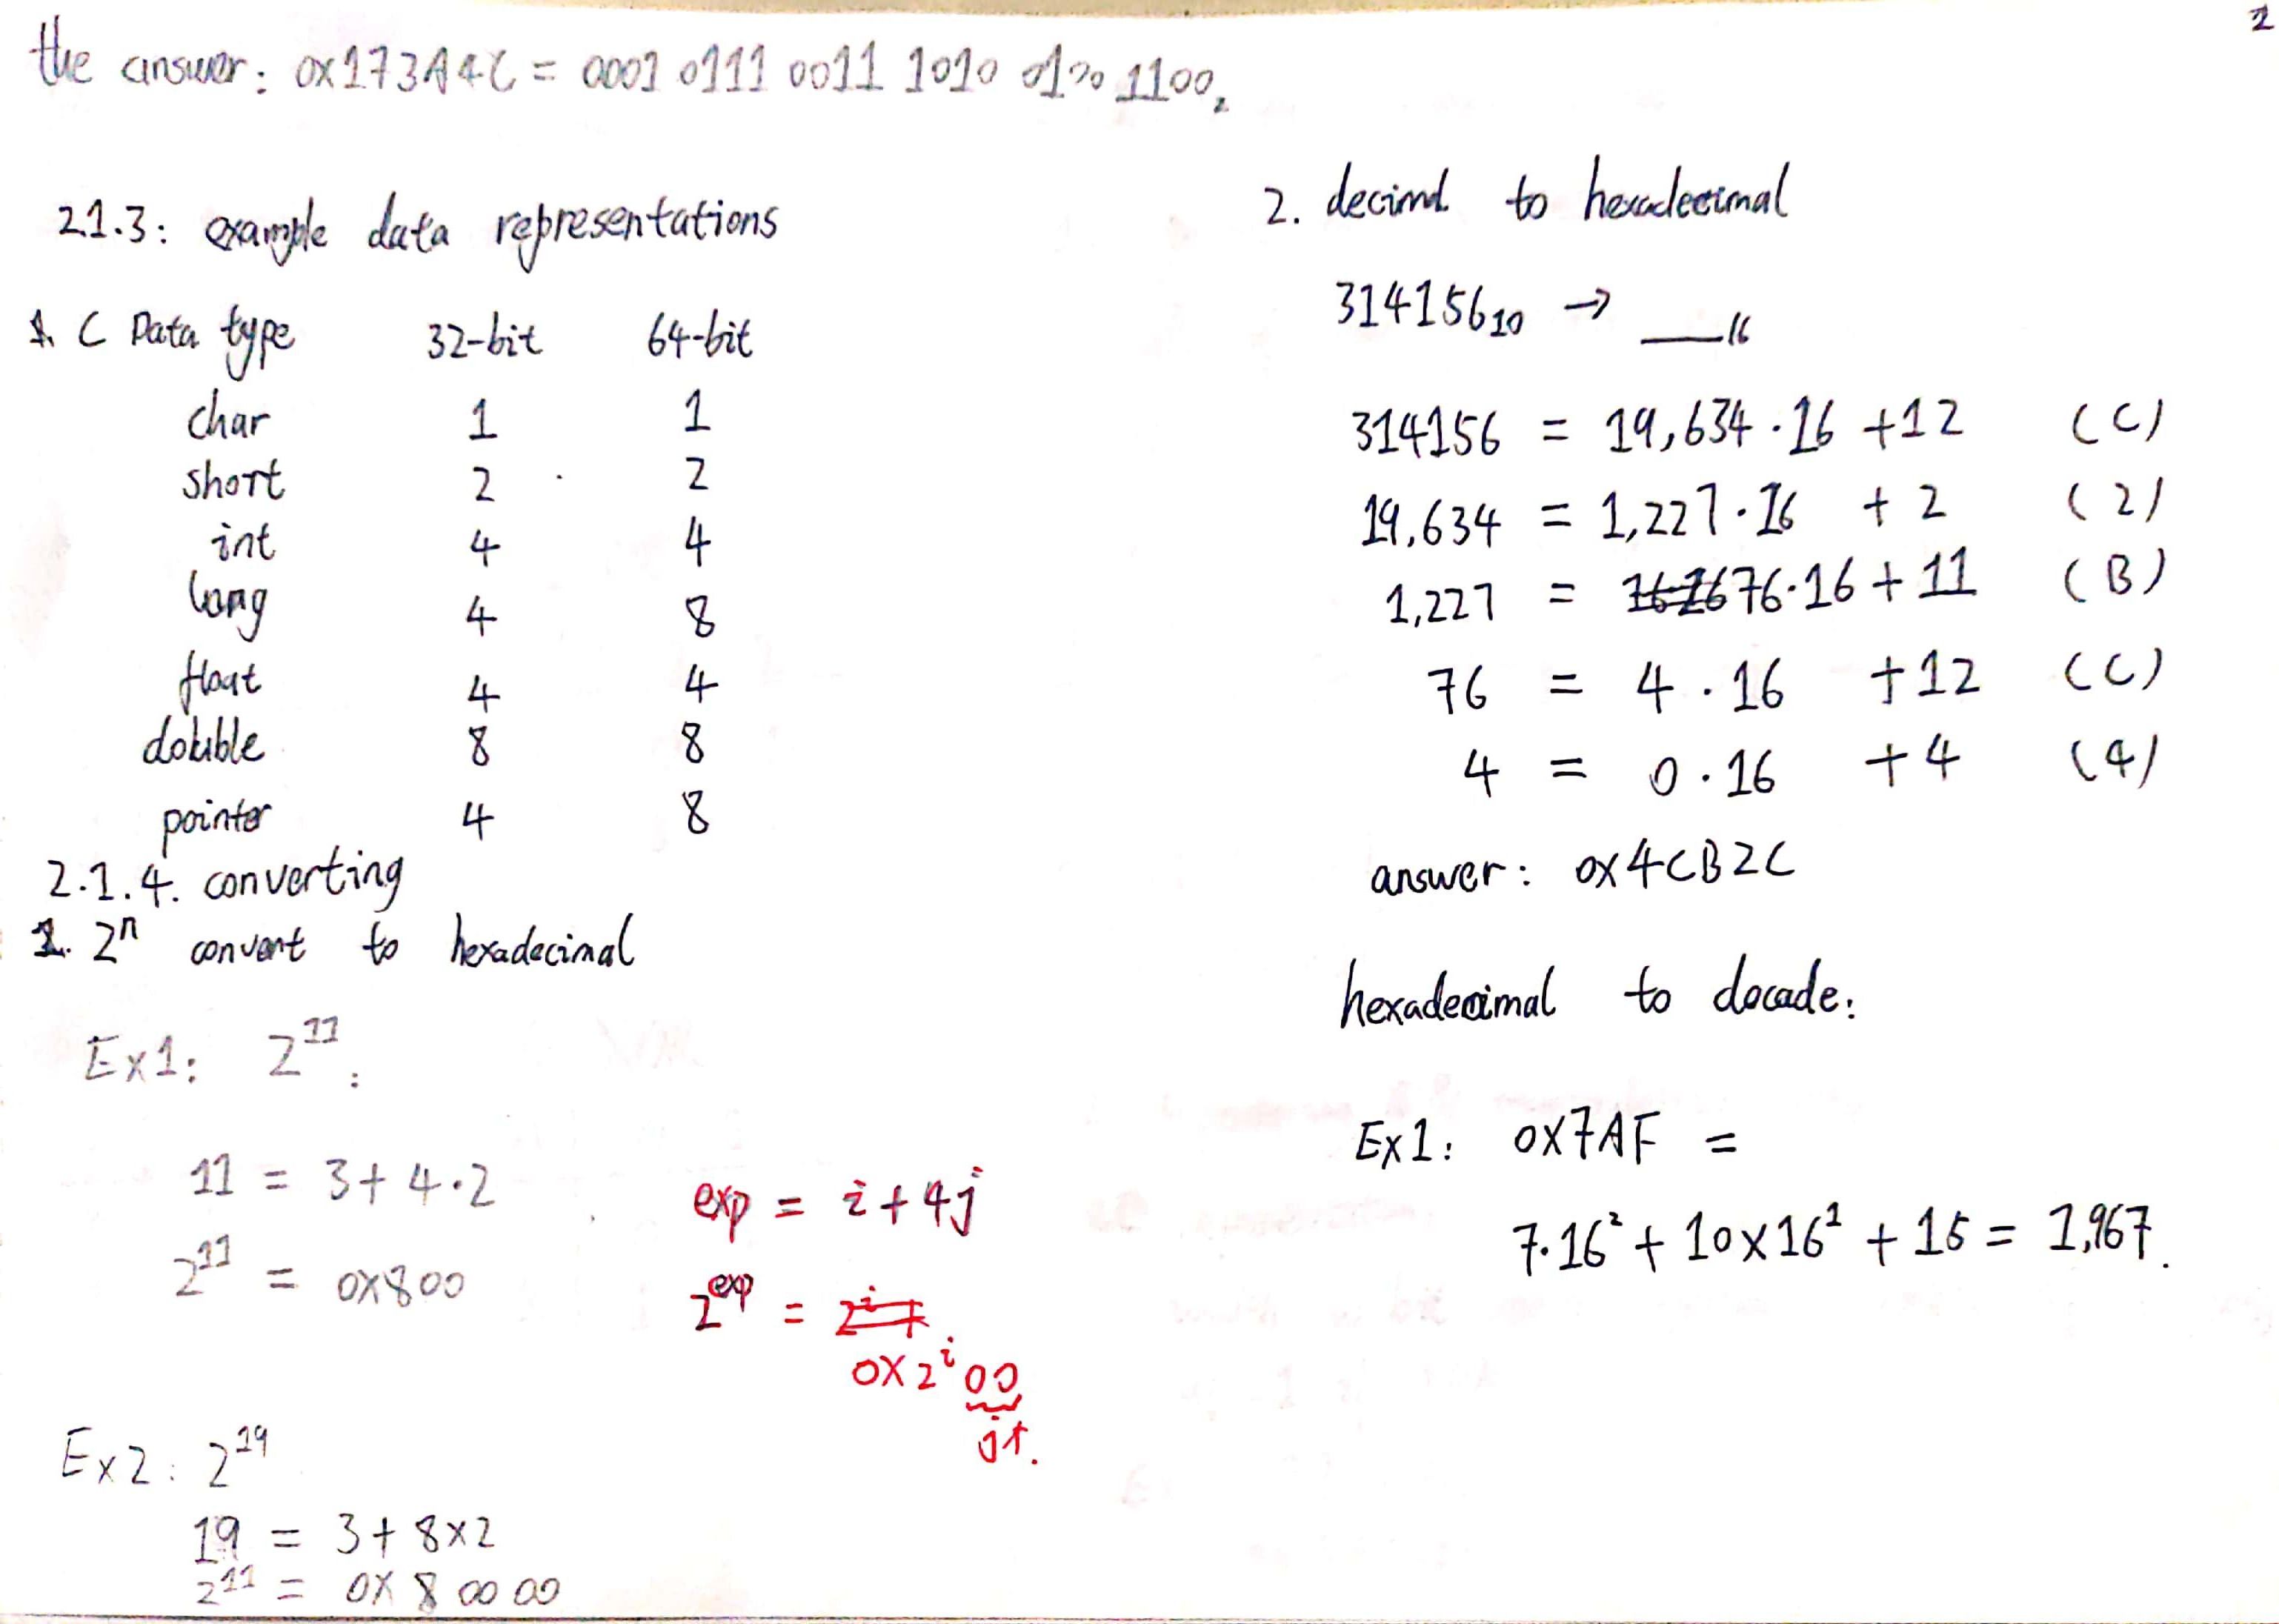 2
the answer: 0x173A4C = 0001 0111 0011 1010 0100 1100₂
2.1.3: example data representations
1. C Data type 32-bit 64-bit
char 1 1
short 2 2
int 4 4
long 4 8
float 4 4
double 8 8
pointer 4 8
2.1.4. converting
1. 2ⁿ convert to hexadecimal
Ex1: 2¹¹:
11 = 3+4·2
2¹¹ = 0x800
exp = i+4j
2^exp =
0x2ⁱ00
j个.
Ex2: 2¹⁹
19 = 3+8x2
2¹¹ = 0x80000
2. decimal to hexadecimal
314156₁₀ → __₁₆
314156 = 19,634·16 +12 (C)
19,634 = 1,227·16 +2 (2)
1,227 = 76·16+11 (B)
76 = 4·16 +12 (C)
4 = 0·16 +4 (4)
answer: 0x4CB2C
hexadecimal to decade:
Ex1: 0x7AF =
7·16²+10x16¹+15 = 1,967.